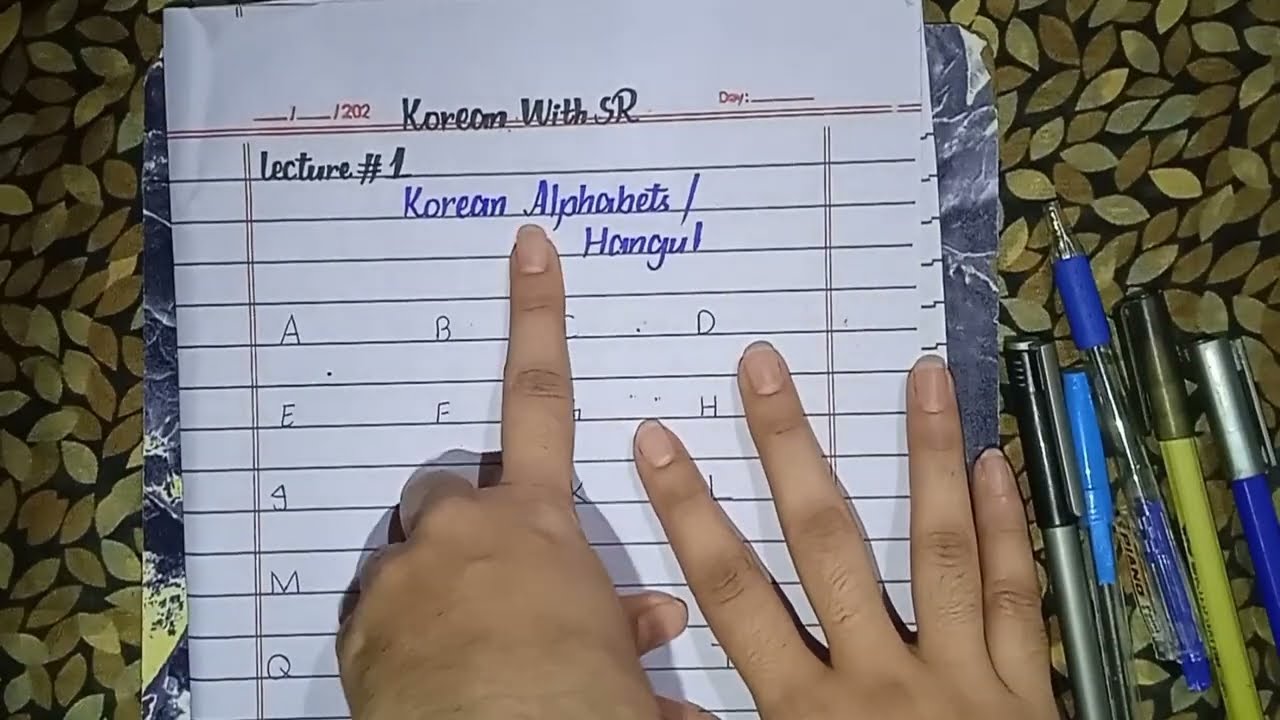 __/__/202 Korean With SR Day:____
Lecture #1
Korean Alphabets /
Hangul
A B C D
E F H
L
M
Q
PIANO